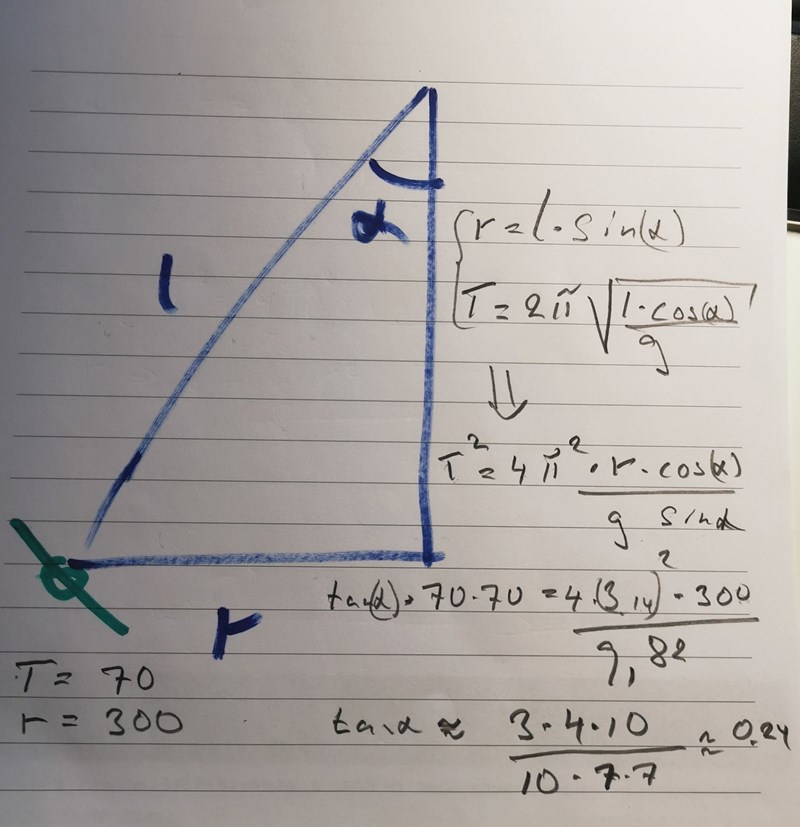 α
l
r = l · sin(α)
T = 2π √ l · cos(α) / g
⇓
T² = 4π² · r · cos(α) / g sinα
tan(α) · 70 · 70 = 4 · (3,14)² · 300 / 9,82
r
T = 70
r = 300
tanα ≈ 3 · 4 · 10 / 10 · 7 · 7 ≈ 0.24